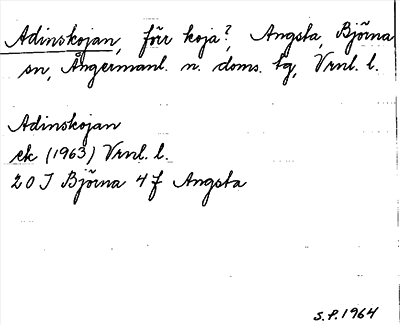 Adinskojan, förr koja?, Angsta, Björna
sn, Ångermanl. n. doms. tg, Vrnl. l.
Adinskojan
ek (1963) Vrnl. l.
20 J Björna 4 f Angsta
S.P. 1964